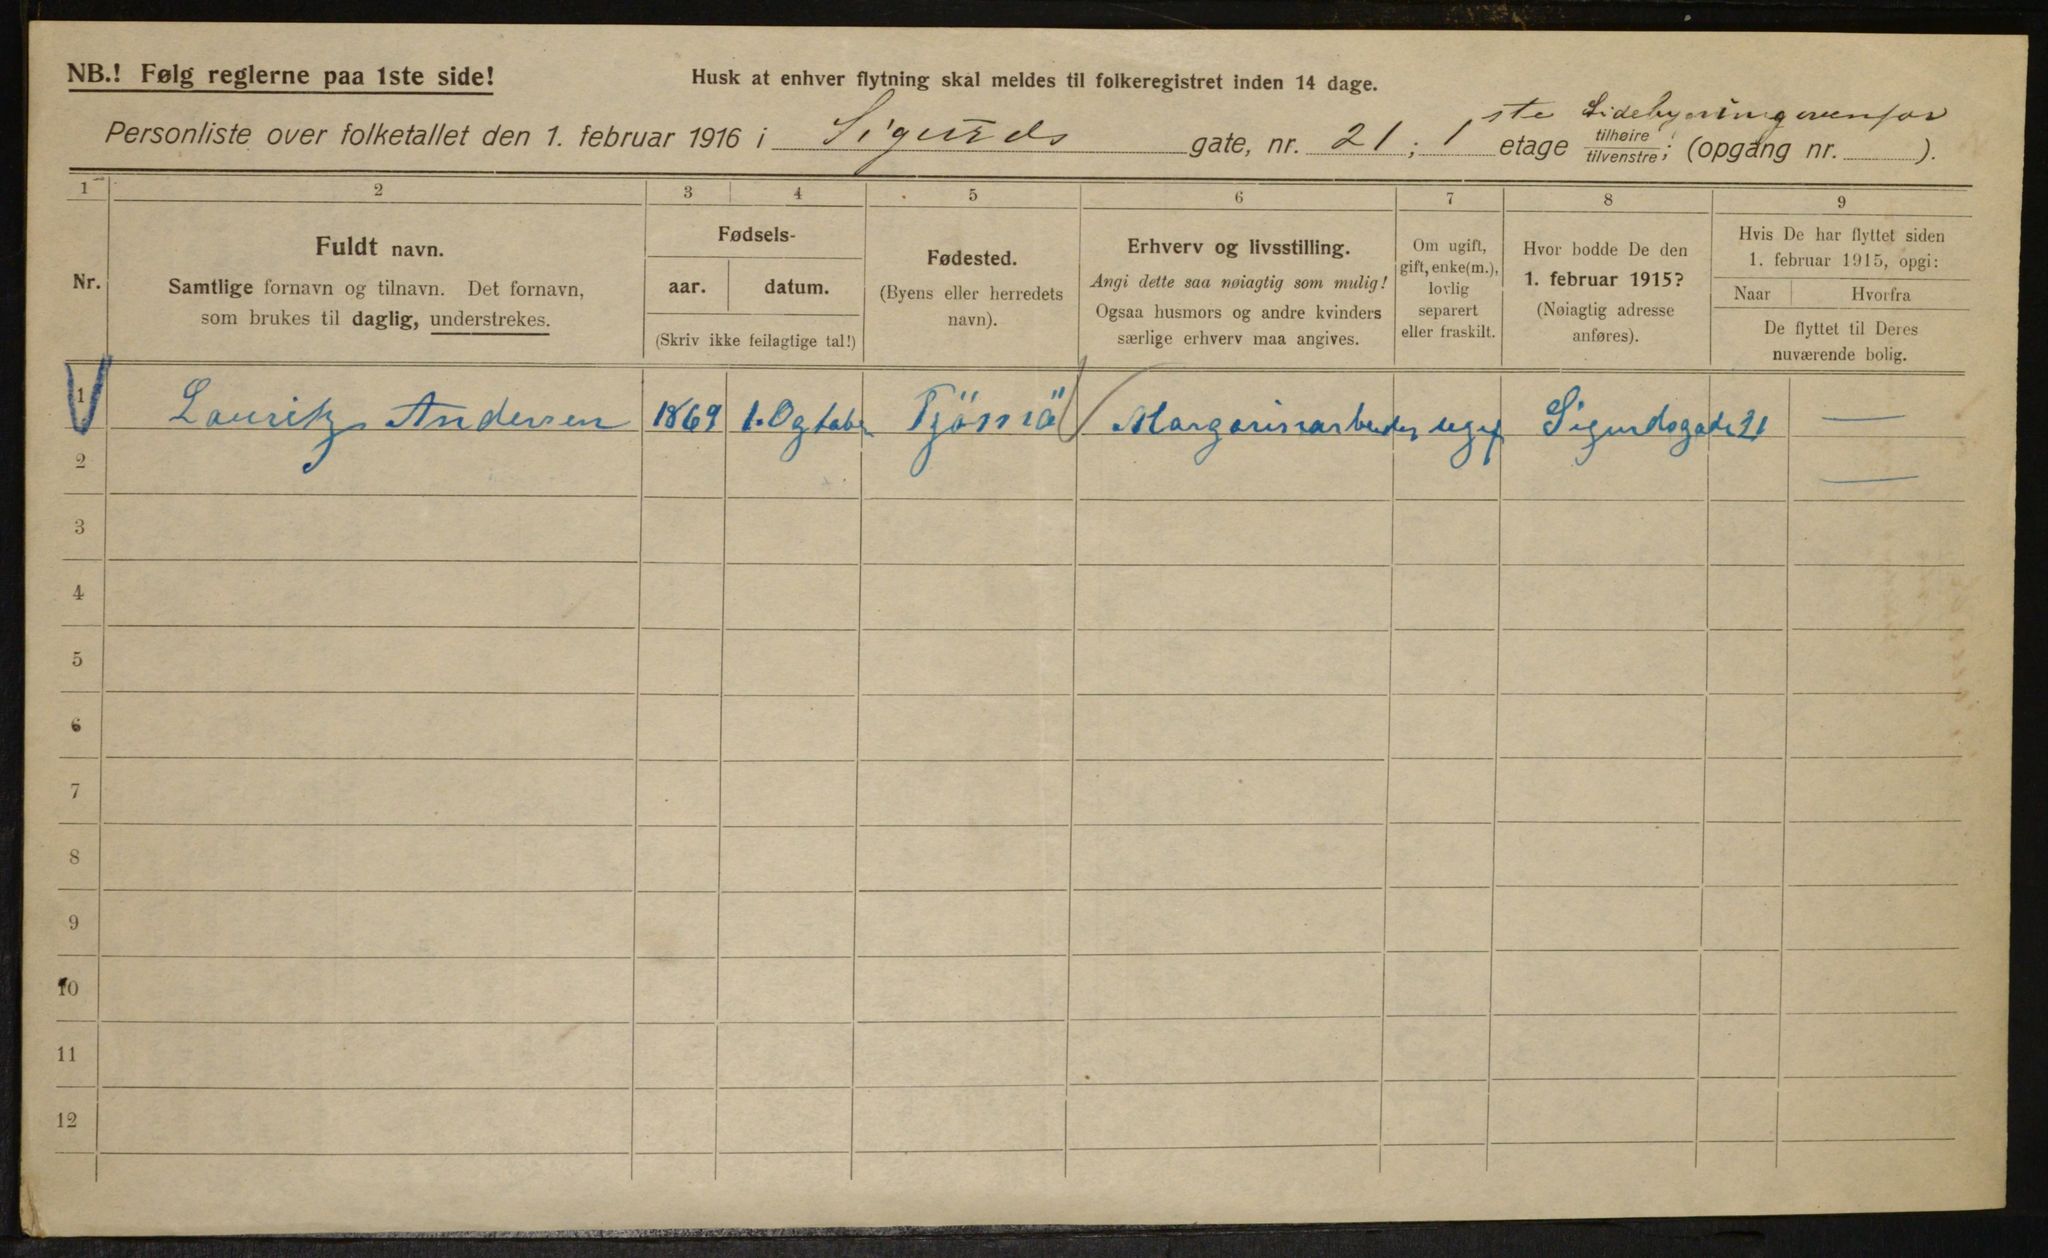 NB.! Følg reglerne paa 1ste side!
Husk at enhver flytning skal meldes til folkeregistret inden 14 dage.
Personliste over folketallet den 1. februar 1916 i Sigurds gate, nr. 21 ; 1 ste etage Sidebygning ovenfor tilhøire/tilvenstre; (opgang nr. ).
1 2 3 4 5 6 7 8 9
Nr.
Fuldt navn.
Samtlige fornavn og tilnavn. Det fornavn,
som brukes til daglig, understrekes.
Fødsels-
aar. datum.
(Skriv ikke feilagtige tal!)
Fødested.
(Byens eller herredets
navn).
Erhverv og livsstilling.
Angi dette saa nøiagtig som mulig!
Ogsaa husmors og andre kvinders
særlige erhverv maa angives.
Om ugift,
gift, enke(m.),
lovlig
separert
eller fraskilt.
Hvor bodde De den
1. februar 1915?
(Nøiagtig adresse
anføres).
Hvis De har flyttet siden
1. februar 1915, opgi:
Naar Hvorfra
De flyttet til Deres
nuværende bolig.
1 Lauritz Andersen 1869 1. Ogtober Tjömö Margarinarbeider ugif Sigurdsgade 21 —
2 —
3
4
5
6
7
8
9
10
11
12